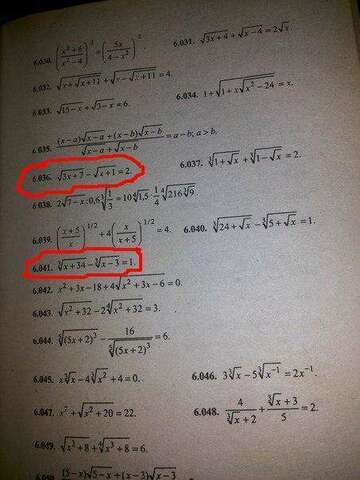 6.030. ((x²+6)/(x²−4))² = (5x/(4−x²))².
6.031. √(3x+4) + √(x−4) = 2√x.
6.032. √(x+√(x+11)) + √(x−√(x+11)) = 4.
6.033. √(15−x) + √(3−x) = 6.
6.034. 1+√(1+x√(x²−24)) = x.
6.035. ((x−a)√(x−a)+(x−b)√(x−b))/(√(x−a)+√(x−b)) = a−b; a>b.
6.036. √(3x+7) − √(x+1) = 2.
6.037. ³√(1+√x) + ³√(1−√x) = 2.
6.038.
6.039. ((x+5)/x)^(1/2) + 4(x/(x+5))^(1/2) = 4.
6.040. ³√(24+√x) − ³√(5+√x) = 1.
6.041. ³√(x+34) − ³√(x−3) = 1.
6.042. x²+3x−18+4√(x²+3x−6) = 0.
6.043. √(x²+32) − 2⁴√(x²+32) = 3.
6.044.
6.045. x³√x − 4³√x² + 4 = 0.
6.046. 3³√x − 5³√x⁻¹ = 2x⁻¹.
6.047. x² + √(x²+20) = 22.
6.048. 4/(³√x+2) + (³√x+3)/5 = 2.
6.049. √(x³+8) + ⁴√(x³+8) = 6.
(5−x)√(5−x)+(x−3)√(x−3)